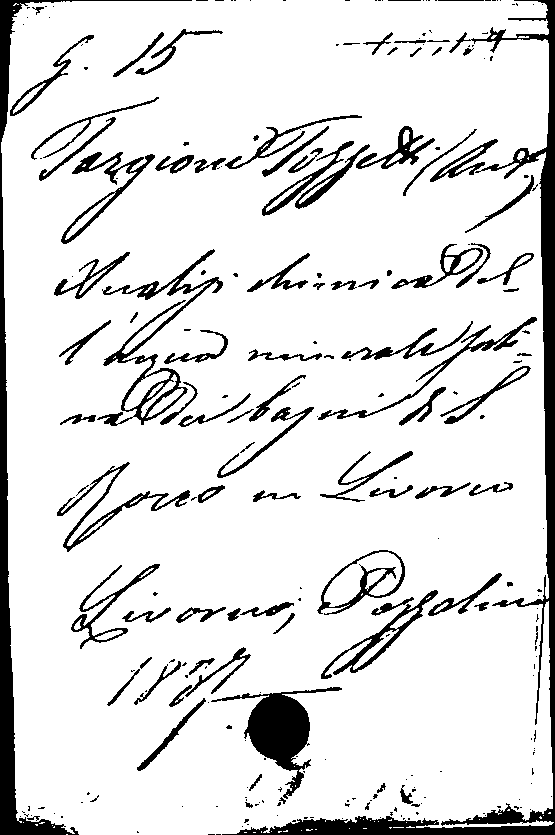 G. 15
Targioni Tozzetti (Ant.)
Analisi chimica del-
l'acqua minerale sali-
na dei bagni di S.
Rocco in Livorno
Livorno, Pozzolini
1837